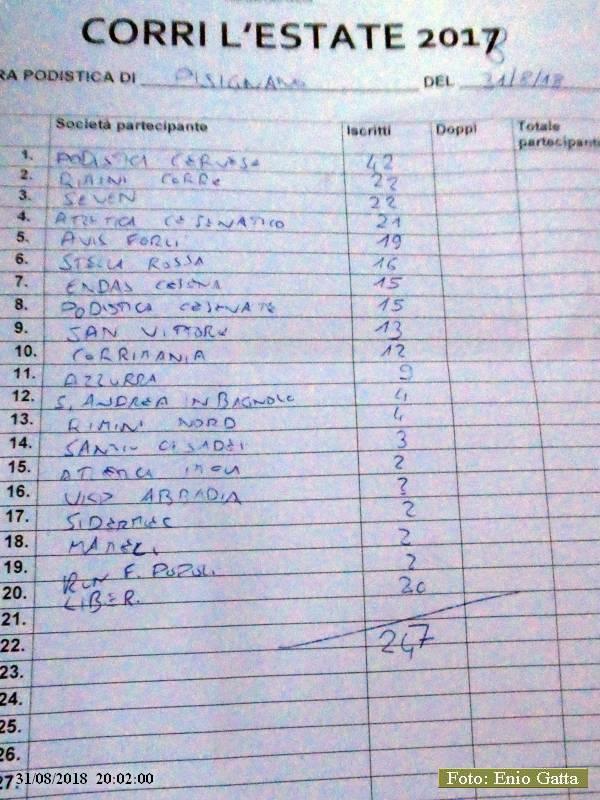 CORRI L'ESTATE 2018
RA PODISTICA DI PISIGNANO DEL 31/8/18
Società partecipante Iscritti Doppi Totale partecipanti
1. PODISTICA CERVESE 42
2. RIMINI CORRE 22
3. SEVEN 22
4. ATLETICA CESENATICO 21
5. AVIS FORLI 19
6. STELLA ROSSA 16
7. ENDAS CESENA 15
8. PODISTICA CESENATE 15
9. SAN VITTORE 13
10. CORRIMANIA 12
11. AZZURRA 9
12. S. ANDREA IN BAGNOLO 4
13. RIMINI NORD 4
14. 3
15. ATLETICA 2
16. ABBADIA 2
17. SIDERMEC 2
18. 2
19. RUN F. POPOLI 2
20. LIBER. 20
21.
22. 247
23.
24.
25.
26.
27.
31/08/2018 20:02:00
Foto: Enio Gatta